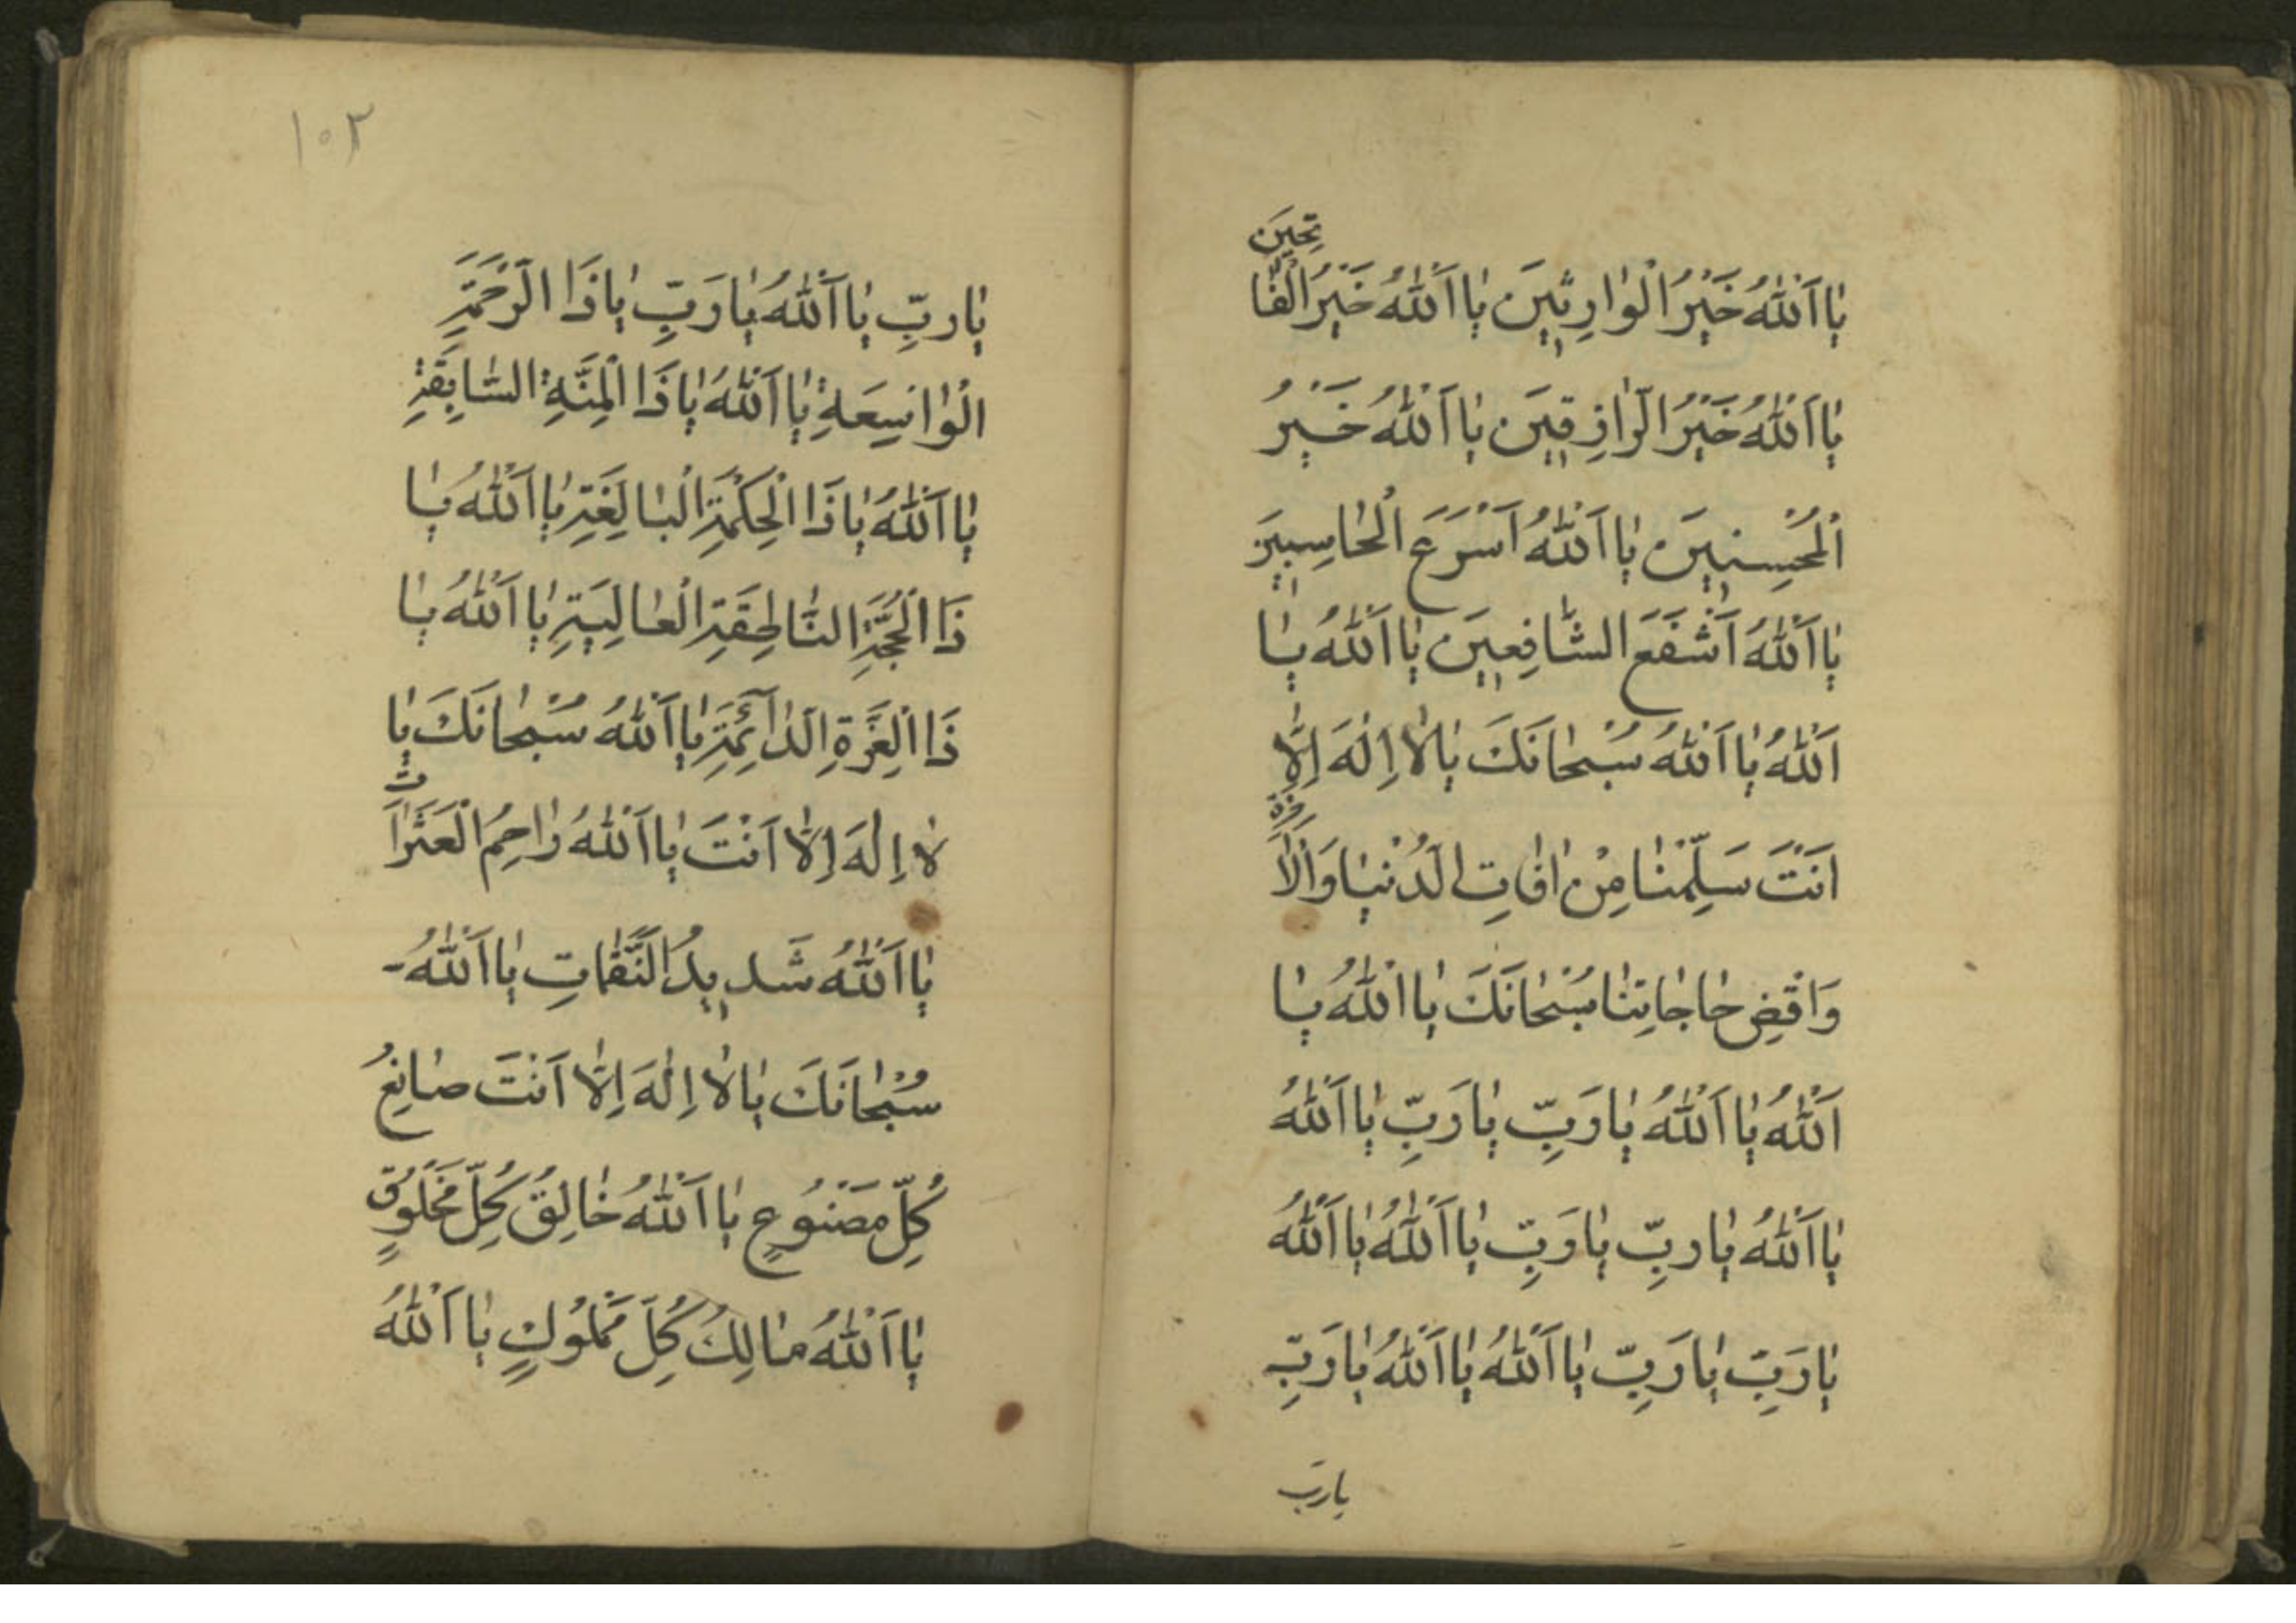 يٰا اَللّٰهُ خَيْرُ الْوٰارِثٖينَ يٰا اَللّٰهُ خَيْرُ الْفٰا
تِحٖينَ
يٰا اَللّٰهُ خَيْرُ الرّٰازِقٖينَ يٰا اَللّٰهُ خَيْرُ
الْمُحْسِنٖينَ يٰا اَللّٰهُ اَسْرَعَ الْحٰاسِبٖينَ
يٰا اَللّٰهُ اَشْفَعَ الشّٰافِعٖينَ يٰا اَللّٰهُ يٰا
اَللّٰهُ يٰا اَللّٰهُ سُبْحٰانَكَ يٰا لاٰ اِلٰهَ اِلاّٰ
اَنْتَ سَلِّمْنٰا مِنْ اٰفٰاتِ الدُّنْيٰا وَالْاٰ
خِرَةِ
وَاقْضِ حٰاجٰاتِنٰا سُبْحٰانَكَ يٰا اَللّٰهُ يٰا
اَللّٰهُ يٰا اَللّٰهُ يٰا رَبِّ يٰا رَبِّ يٰا اَللّٰهُ
يٰا اَللّٰهُ يٰا رَبِّ يٰا رَبِّ يٰا اَللّٰهُ يٰا اَللّٰهُ
يٰا رَبِّ يٰا رَبِّ يٰا اَللّٰهُ يٰا اَللّٰهُ يٰا رَبِّ
يا ربّ
١٠٢
يٰا ربِّ يٰا اَللّٰهُ يٰا رَبِّ يٰا ذَا الرَّحْمَةِ
الْوٰاسِعَةِ يٰا اَللّٰهُ يٰا ذَا الْمِنَّةِ السّٰابِقَةِ
يٰا اَللّٰهُ يٰا ذَا الْحِكْمَةِ الْبٰالِغَةِ يٰا اَللّٰهُ يٰا
ذَا الْحُجَّةِ النّٰاطِقَةِ الْعٰالِيَةِ يٰا اَللّٰهُ يٰا
ذَا الْعِزَّةِ الدّٰآئِمَةِ يٰا اَللّٰهُ سُبْحٰانَكَ يٰا
لاٰ اِلٰهَ اِلاّٰ اَنْتَ يٰا اَللّٰهُ رٰاحِمُ الْعَثَرٰا
تِ
يٰا اَللّٰهُ شَدٖيدُ النَّقِمٰاتِ يٰا اَللّٰهُ
سُبْحٰانَكَ يٰا لاٰ اِلٰهَ اِلاّٰ اَنْتَ صٰانِعُ
كُلِّ مَصْنُوعٍ يٰا اَللّٰهُ خٰالِقُ كُلِّ مَخْلُوقٍ
يٰا اَللّٰهُ مٰالِكُ كُلِّ مَمْلُوكٍ يٰا اَللّٰهُ